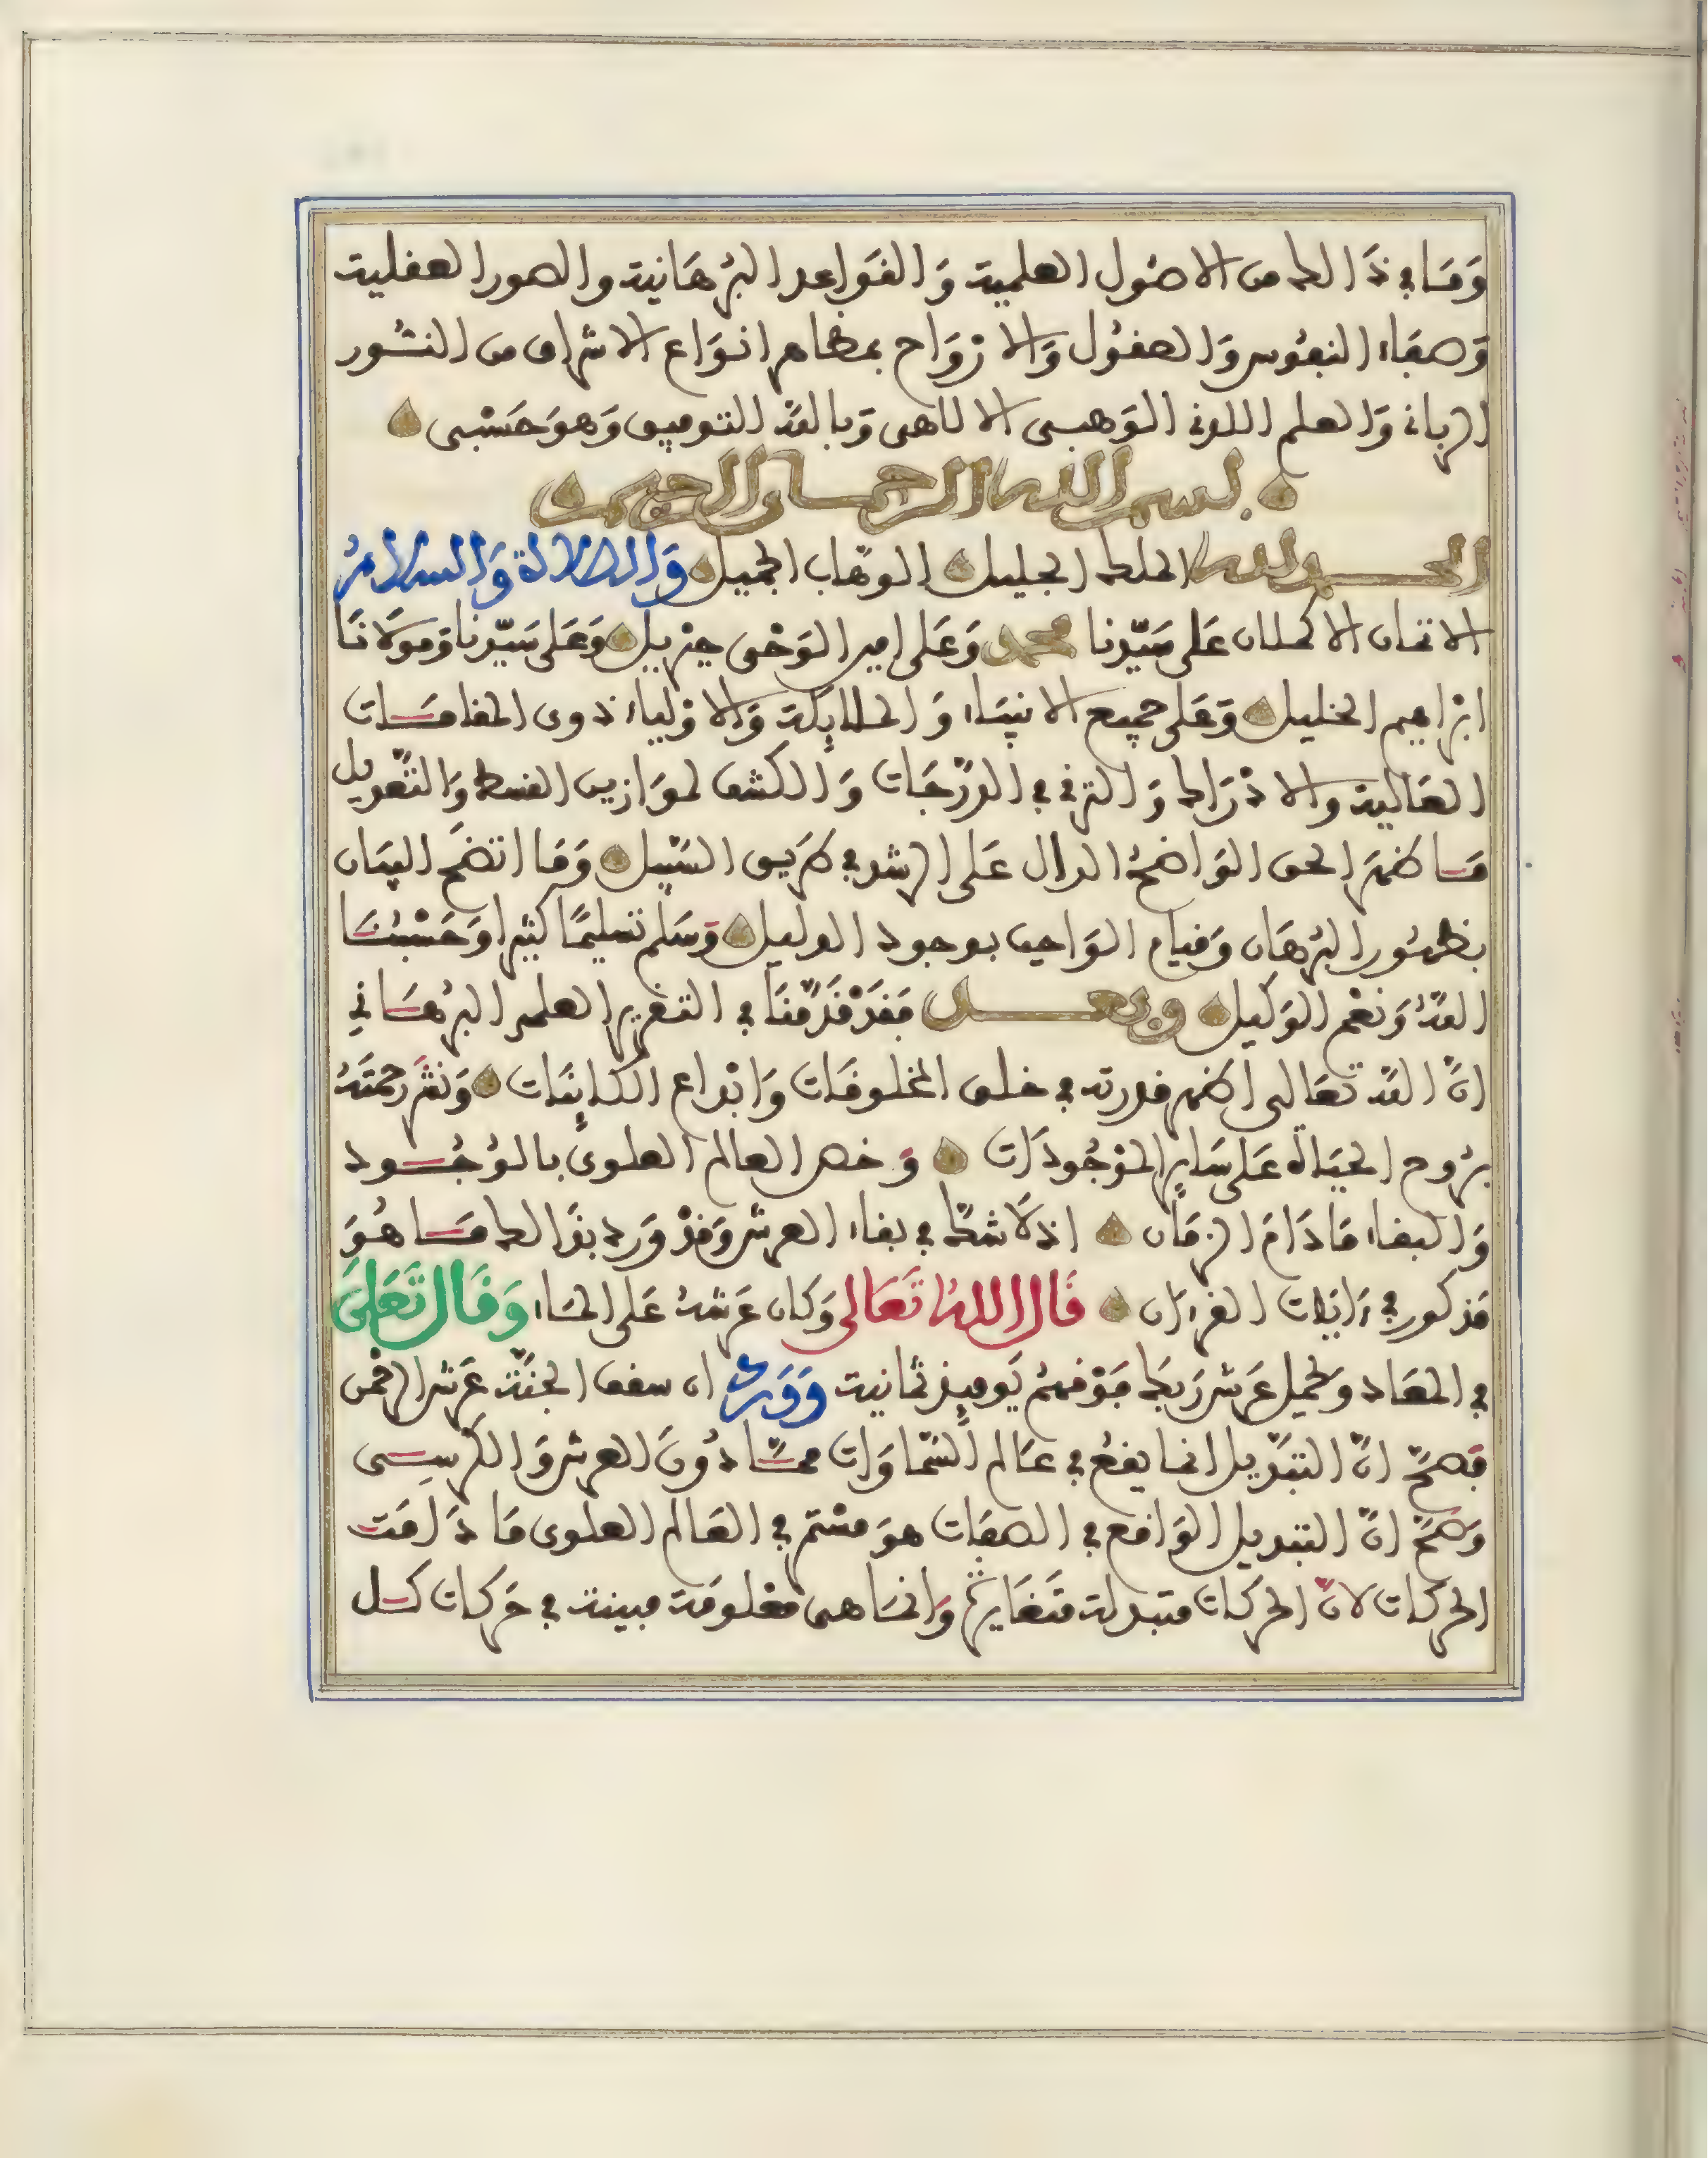 وَمَا في ذَالك من الاصُول العلمية وَالقَواعد البُرهَانية والصور العقلية
وَصفَاء النفُوس وَالعقُول وَالارْوَاح بمظاهر انوَاع الاشراق من النُّور
الرباني وَالعلم اللدني الوَهبى الالاهى وَبالله التوفيق وَهوَ حَسْبى
بسم الله الرحمان الرحيم
الحمد لله الملك الجليل الوهّاب الجميل وَالصّلاة وَالسّلامُ
الاتمان الاكملان عَلى سَيّدنا محمد وَعَلى امين الوَحْى جبريل وَعَلى سَيّدنا وَمولانَا
ابرَاهيم الخليل وَعَلى جميع الانبيَاء وَالملائكة وَالاوْلياء ذوى المقامَات
العَالية والادْرَاك وَالترقي في الدّرَجَات وَالكشف لموَازين القسط وَالتّعديل
مَا ظهَرَ الحق الوَاضحُ الدال عَلى الرشد في طرَيق السّبيل وَمَا اتضَحَ البيَان
بظهُور البُرهَان وَقيام الوَاجب بوجود الدليل وَسَلم تسليمًا كثيرا وَحَسْبُنَا
اللهُ وَنعْم الوَكيل وبعد فَقَدْ قَدّمْنَا في التقرير العلمي البُرهَاني
انّ الله تعَالى اظهر قدرته في خلق المخلوقَات وَابْداع الكائنَات وَنشَر رحمتَهُ
برُوح الحيَاة عَلى سَائر الموْجُودَات وَخص العالم العلوى بالوُجُود
وَالبقاء مَا دَامَ الزمَان اذ لاَ شكّ في بقاء العرش وَقدْ وَرد بذَالك مَا هُوَ
مَذكور في ءَايَات القرءان قَال اللهُ تَعَالى وَكان عَرشهُ عَلى المَاء وَقَال تَعَلىَ
في المعَاد وَيحمل عَرش رَبكَ فوْقهمْ يَومئِذ ثمانية وَوَرد ان سقف الجنّة عَرش الرحمن
فصَحّ انّ التبْديل انما يقعُ في عَالم السّماوَات ممّا دُونَ العرش وَالكرسى
وَصَحّ انّ التبديل الوَاقع في الصفَات هوَ مسْتمر في العَالم العلوى مَا دَامَت
الحركات لانّ الحركات متبدلة متَغَايرة وَانمَا هى معْلومَة مبينة في حَركات كل